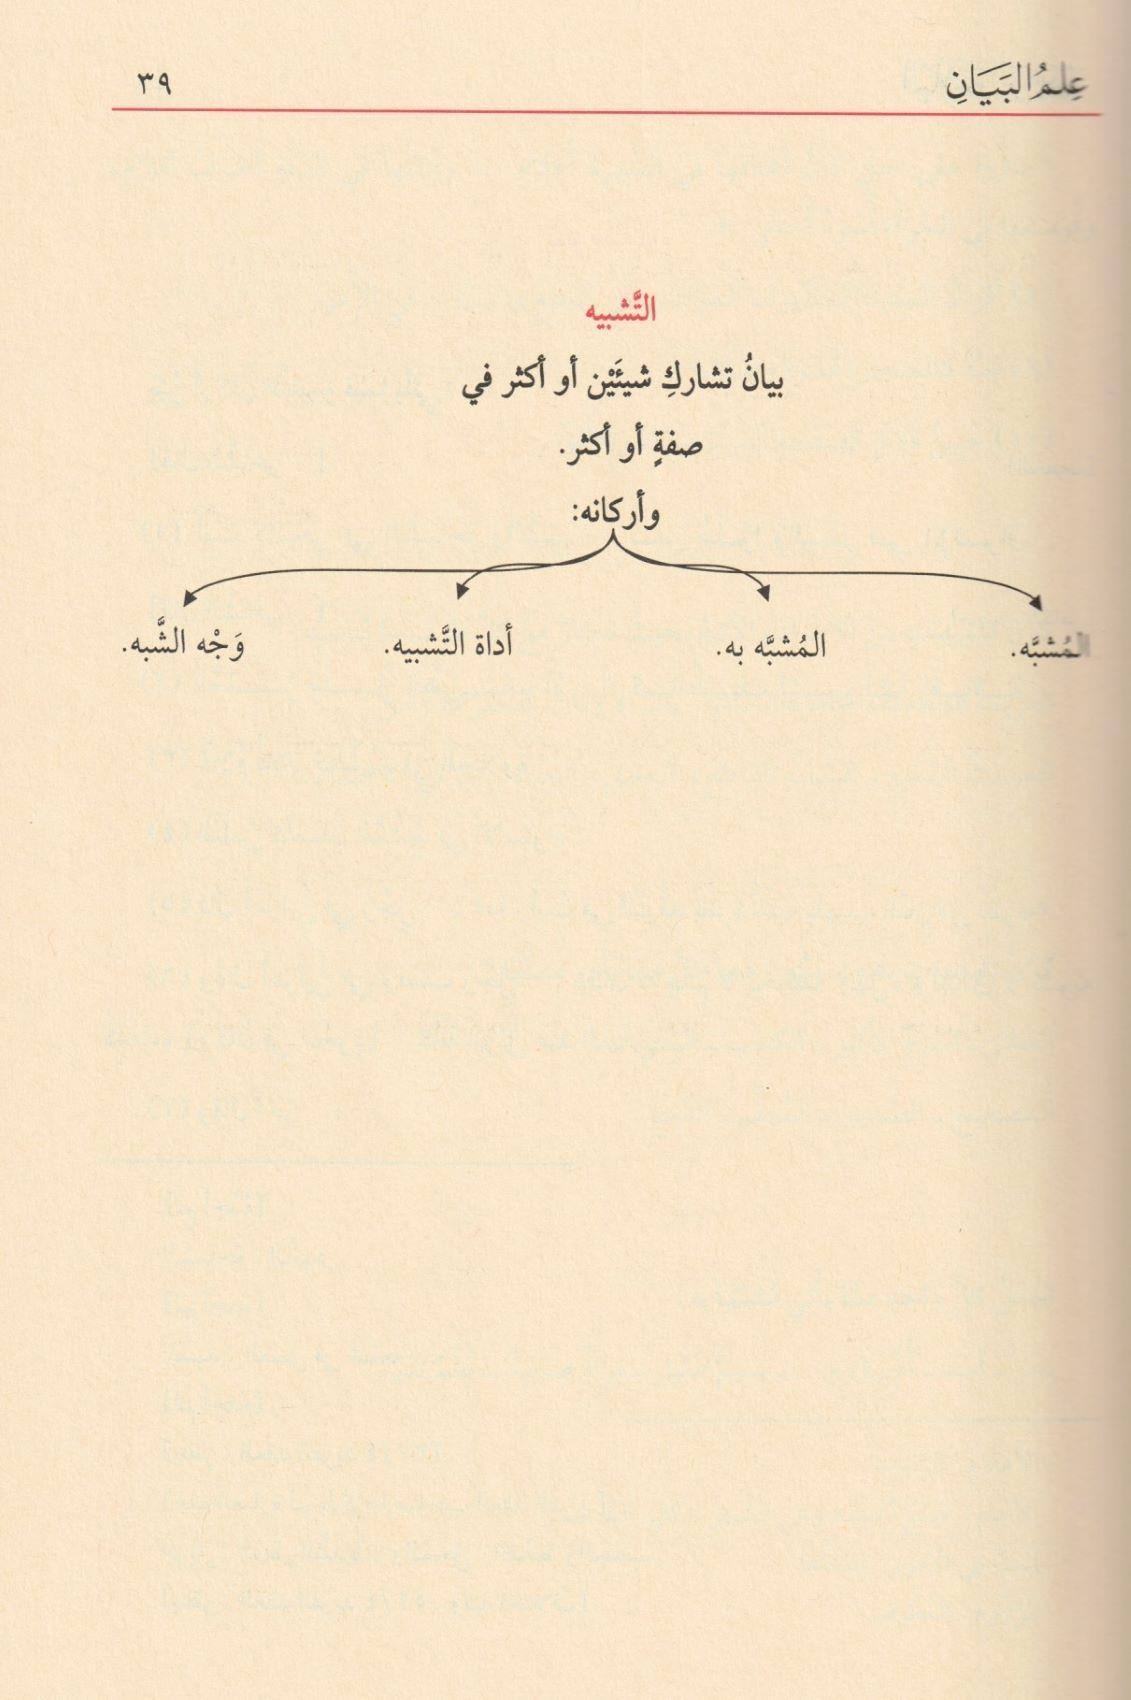 عِلمُ البَيَانِ ٣٩
التَّشبيه
بيانُ تشاركِ شيئَيْن أو أكثر في
صفةٍ أو أكثر.
وأركانه:
المُشبَّه. المُشبَّه به. أداة التَّشبيه. وَجْه الشَّبه.